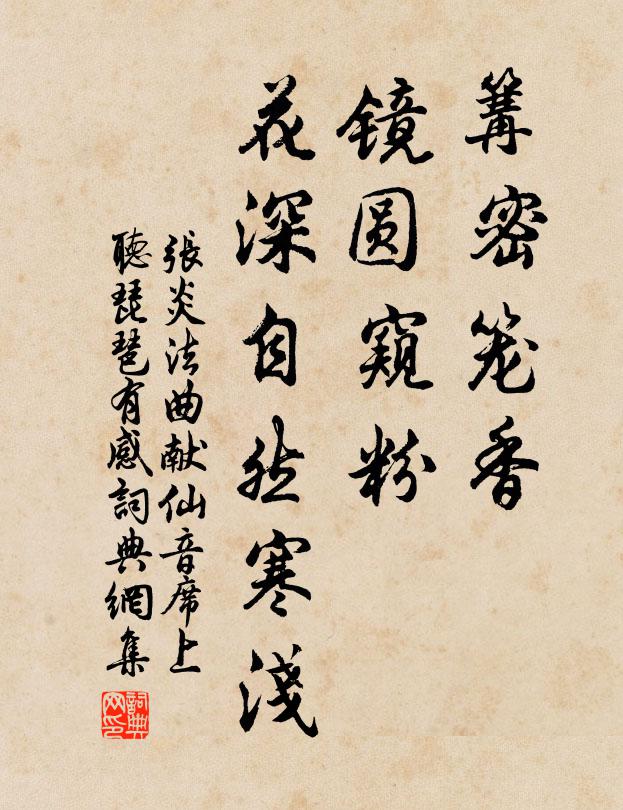 篝密笼香
镜圆窥粉
花深自然寒淺
張炎法曲献仙音席上
聽琵琶有感詞典網集
詞典网印